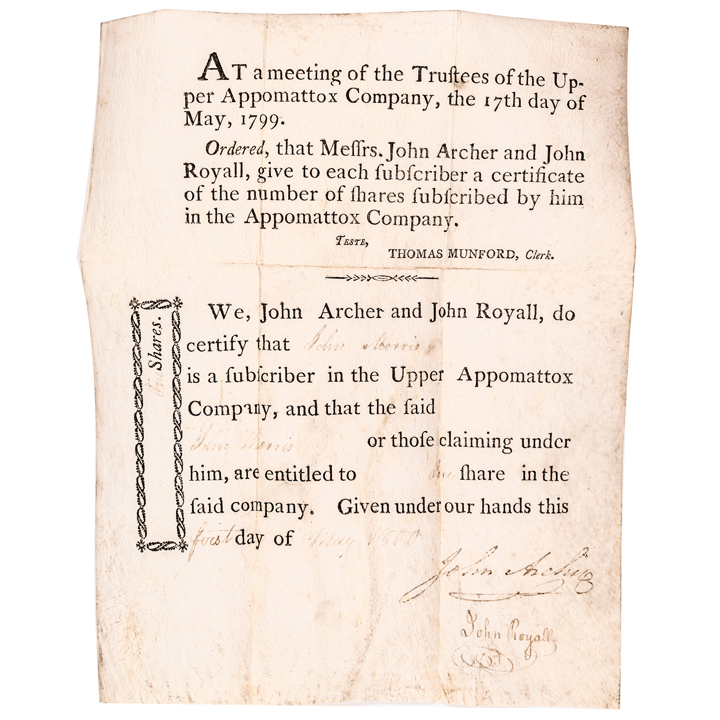 AT a meeting of the Truſtees of the Up-
per Appomattox Company, the 17th day of
May, 1799.
Ordered, that Meſſrs. John Archer and John
Royall, give to each ſubſcriber a certificate
of the number of ſhares ſubſcribed by him
in the Appomattox Company.
TESTE,
THOMAS MUNFORD, Clerk.
Shares.
We, John Archer and John Royall, do
certify that John Morris
is a ſubſcriber in the Upper Appomattox
Company, and that the ſaid
John Morris or thoſe claiming under
him, are entitled to one ſhare in the
ſaid company. Given under our hands this
first day of May 1800
John Archer
John Royall